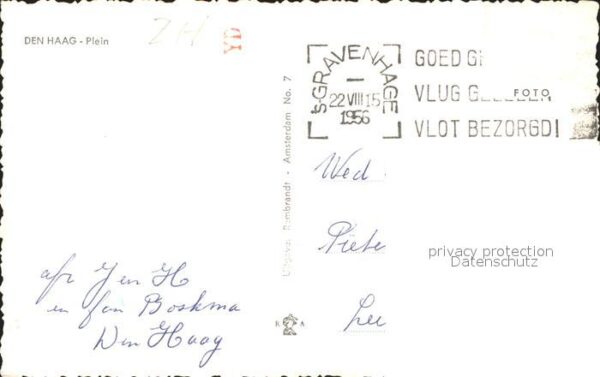 DEN HAAG - Plein
ZH
YD
's-GRAVENHAGE
22 VIII 15
1956
GOED
VLUG
VLOT BEZORGD!
FOTO
Uitgave: Rembrandt - Amsterdam No. 7
Wed
Piete
privacy protection
Datenschutz
afz J en H
en fam Boskma
Den Haag
R A